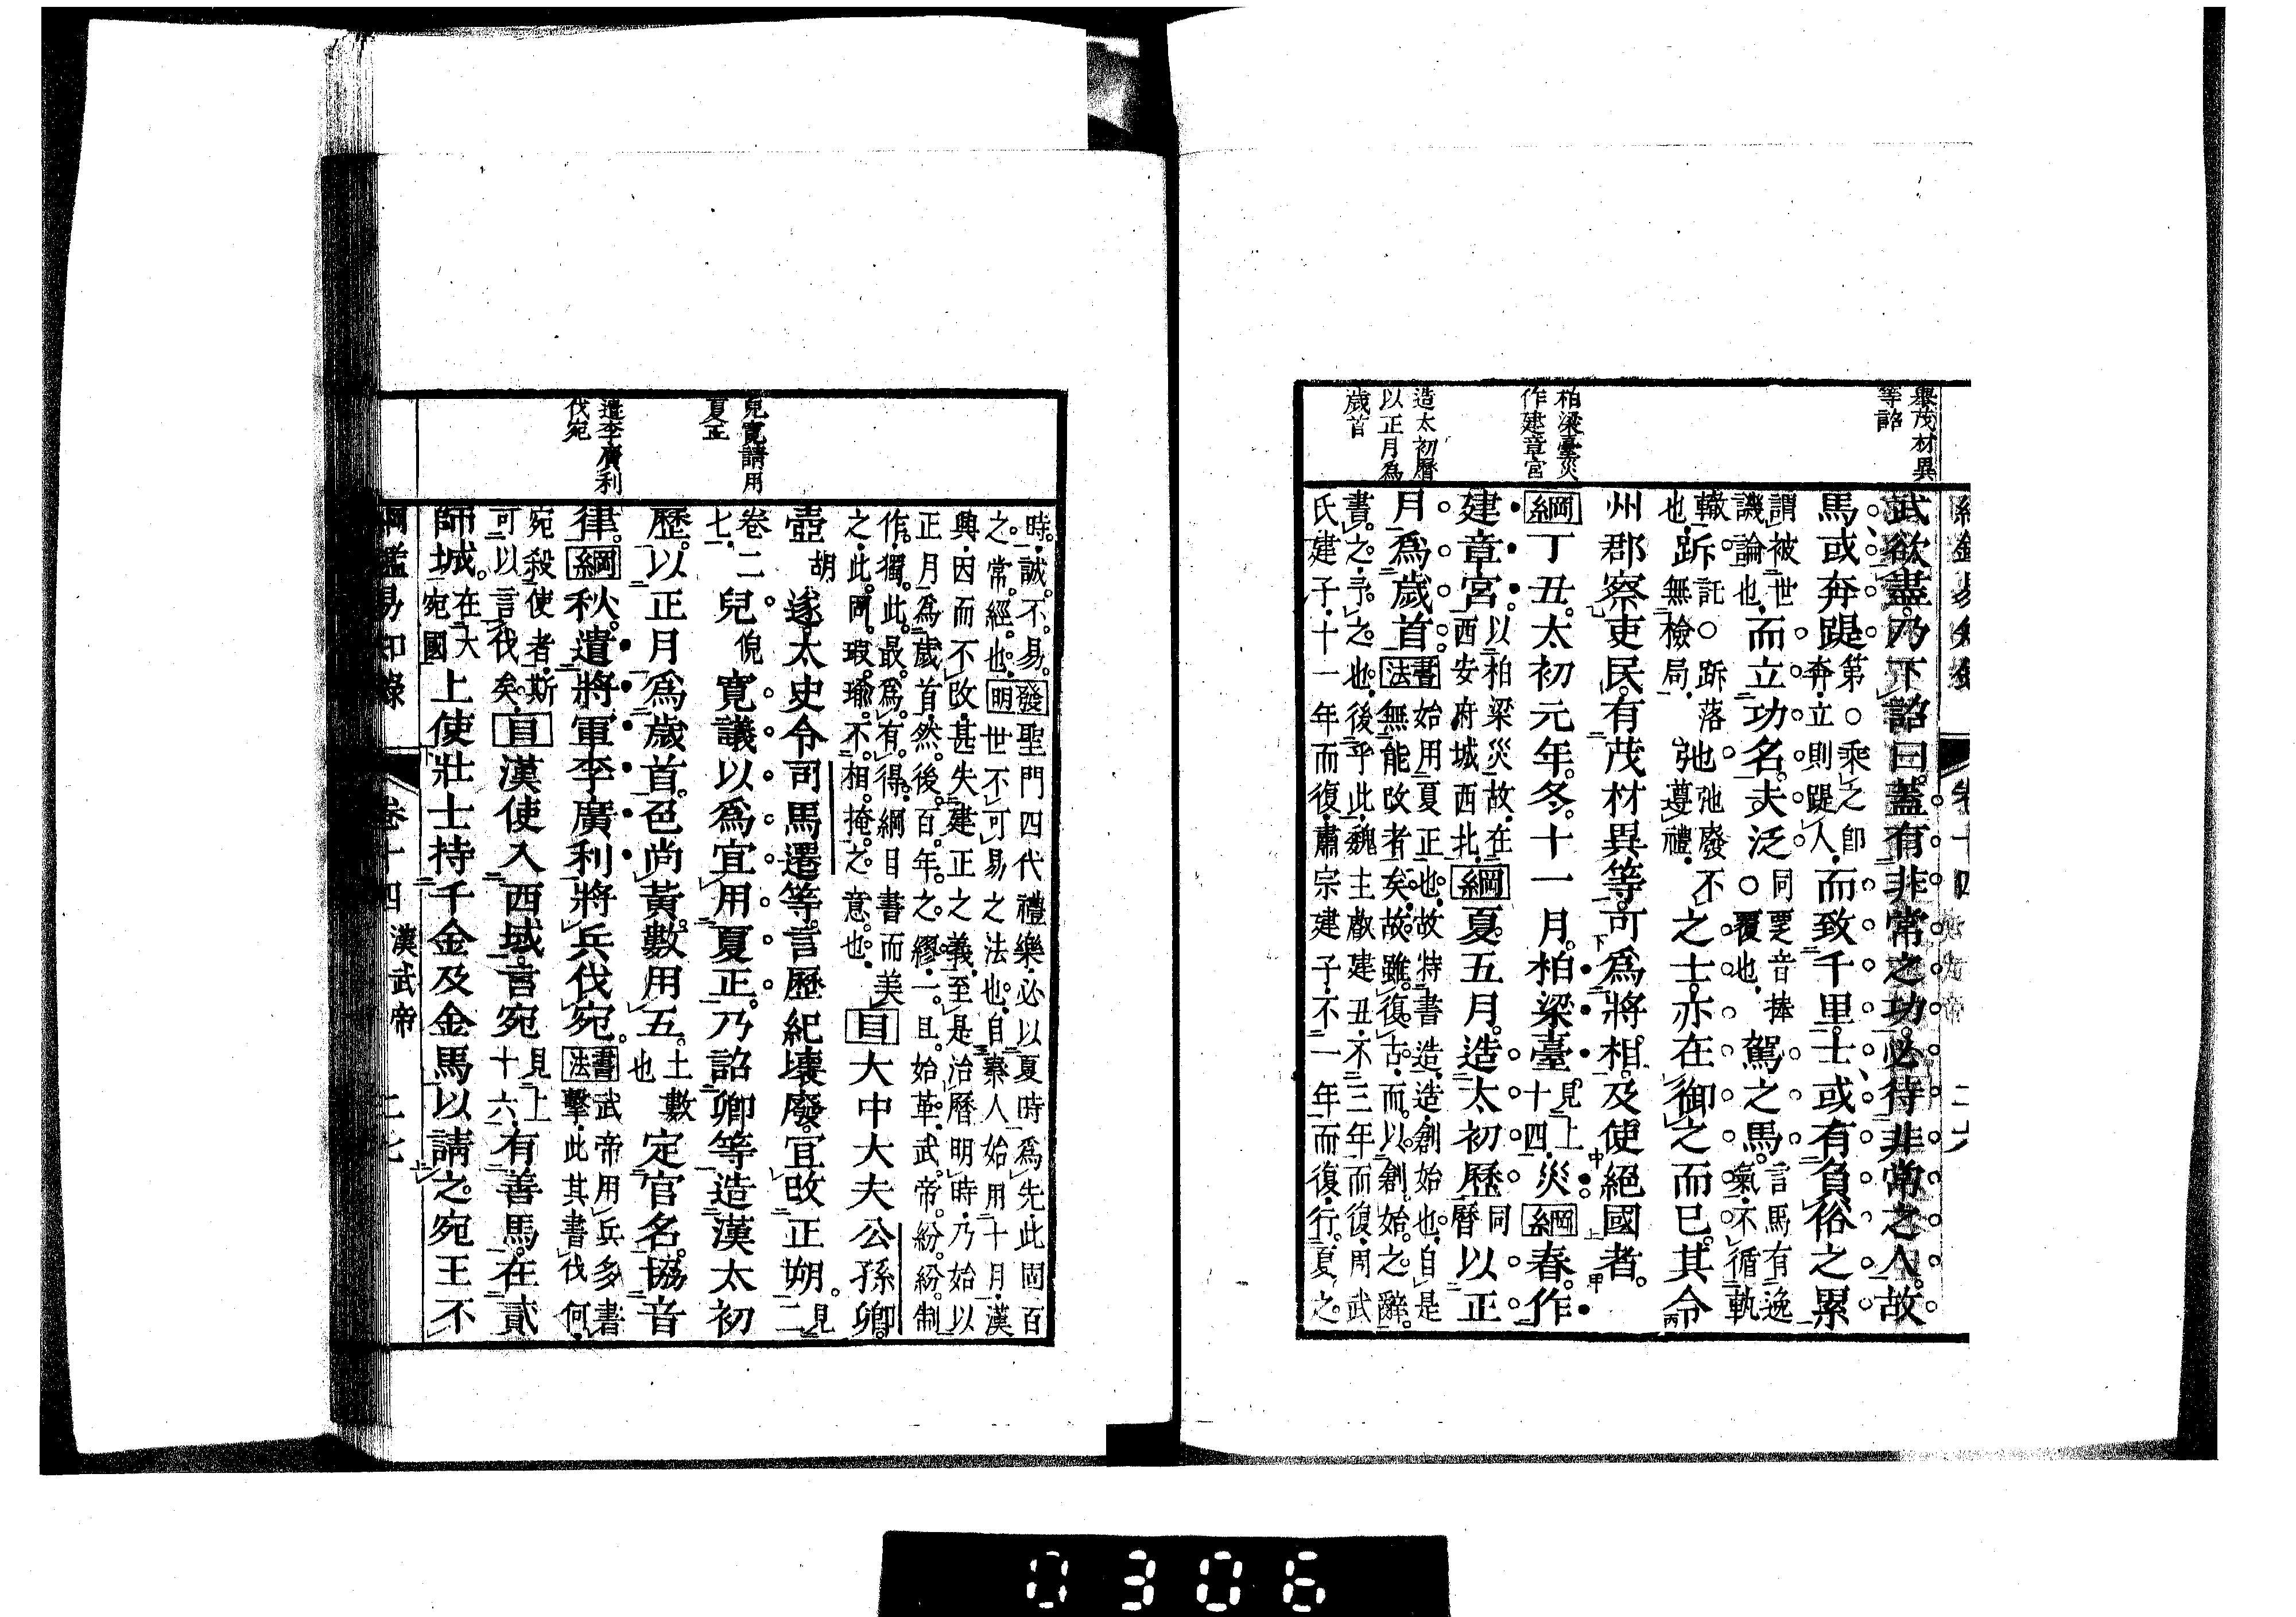 舉茂材異
等詔
武欲盡乃下詔曰蓋有非常之功必待非常之人故
馬或奔踶第○乘之卽奔立則踶人而致千里士或有負俗之累
謂被世譏論也而立功名夫泛同覂音捧○覆也駕之馬言馬有逸氣不循軌
轍跅託○跅落也無檢局弛弛廢不遵禮之士亦在御之而已其令
州郡察吏民有茂材異等可爲將相及使絕國者
柏梁臺災
作建章宮
綱丁丑太初元年冬十一月柏梁臺見上十四災綱春作
建章宮以柏梁災故在西安府城西北綱夏五月造太初歷同曆以正
造太初曆
以正月爲
歲首
月爲歲首書法始用夏正也故特書造造創始也自是
無能改者矣故雖復古而以創始之辭
書之予之也後乎此魏主叡建丑不三年而復周武
氏建子十一年而復肅宗建子不一年而復行夏之
時誠不易發明聖門四代禮樂必以夏時爲先此固百
之常經也世不可易之法也自秦人始用十月漢
興因而不改甚失建正之義至是治曆明時乃始以
正月爲歲首然後百年之繆一旦始革武帝紛紛制
作獨此最爲有得綱目書而美
之此固瑕瑜不相掩之意也目大中大夫公孫卿
壺胡遂太史令司馬遷等言歷紀壞廢宜改正朔見二
兒寬請用
夏正
卷二七兒倪寬議以爲宜用夏正乃詔卿等造漢太初
歷以正月爲歲首色尚黃數用五土數也定官名協音
遣李廣利
伐宛
律綱秋遣將軍李廣利將兵伐宛書法武帝用兵多書擊此其書伐何
宛殺使者斯可以言伐矣目漢使入西域言宛見上十六有善馬在貳
師城在大宛國上使壯士持千金及金馬以請之宛王不
綱鑑易知錄 卷十四 漢武帝 二七
0306